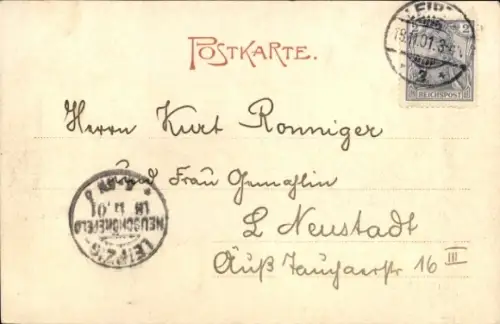 POSTKARTE.
LEIPZIG
2
REICHSPOST
Herrn Kurt Ronniger
und Frau Gemahlin
L Neustadt
Äuß Tauchaerstr 16 III
LEIPZIG
NEUSCHÖNEFELD